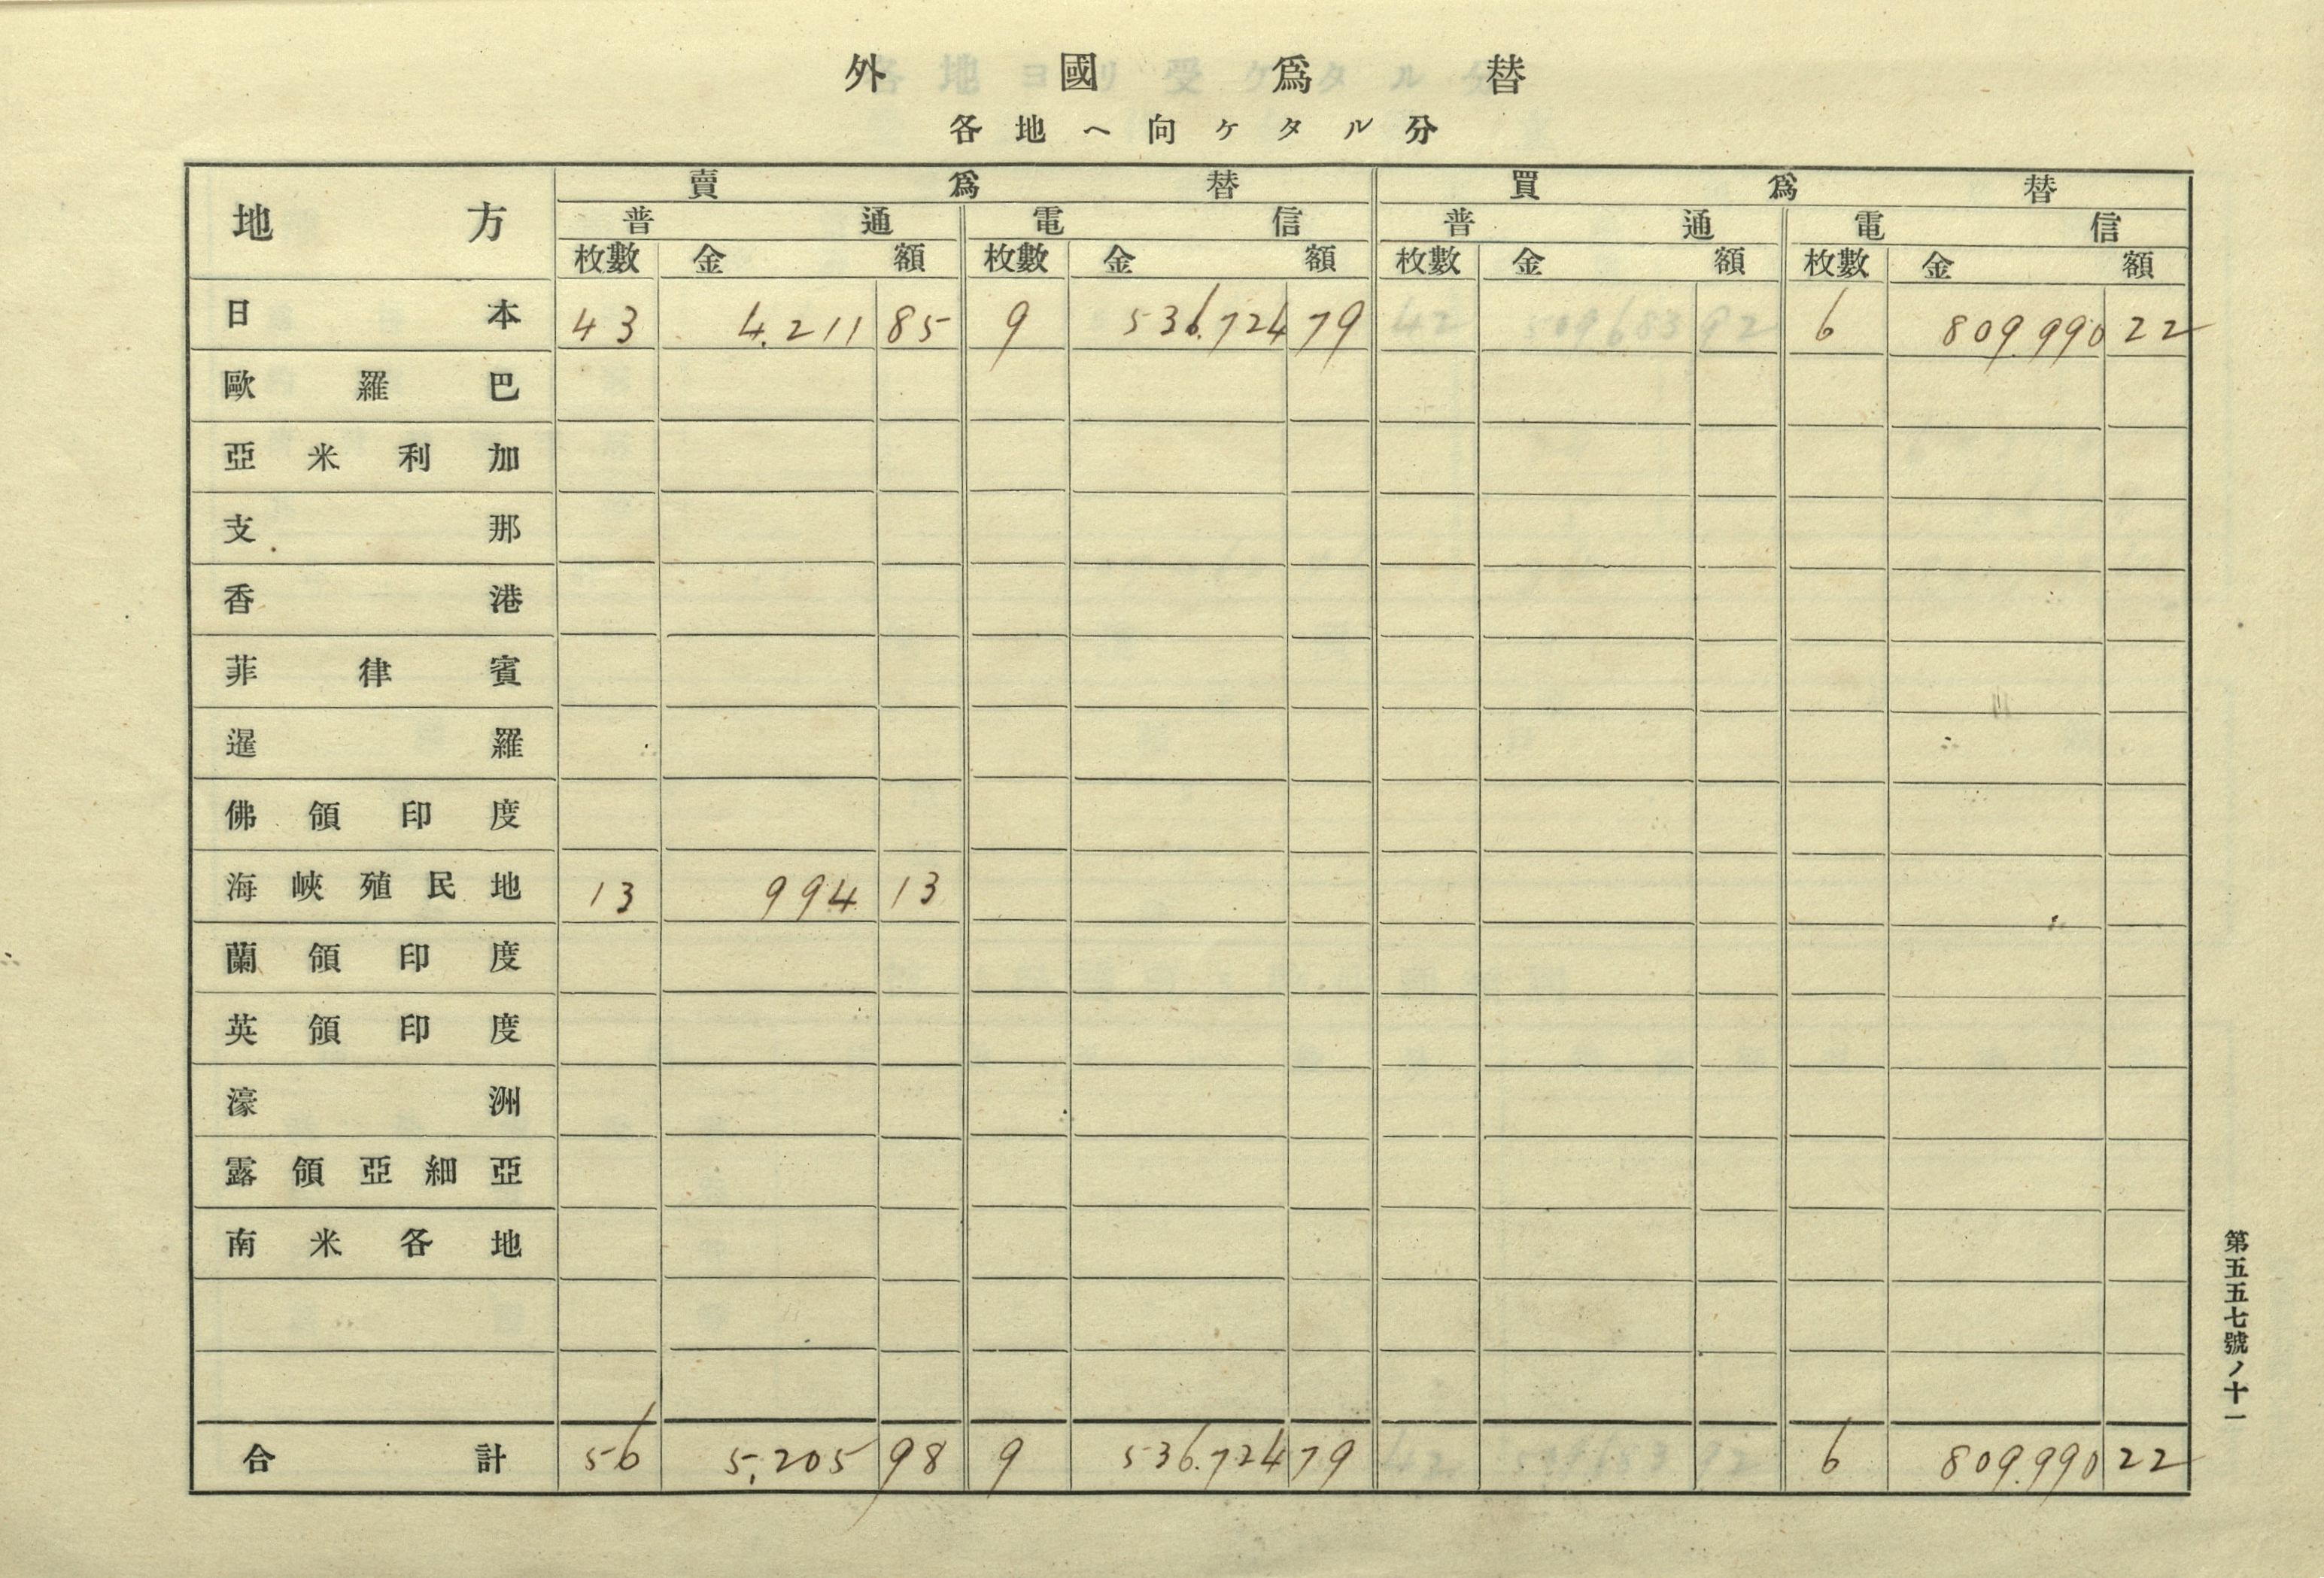 外國爲替
各地ヘ向ケタル分
地方 賣爲替 買爲替
普通 電信 普通 電信
枚數 金額 枚數 金額 枚數 金額 枚數 金額
日本 43 4,211 85 9 536,724 79 42 509683 92 6 809,990 22
歐羅巴
亞米利加
支那
香港
菲律賓
暹羅
佛領印度
海峽殖民地 13 994 13
蘭領印度
英領印度
濠洲
露領亞細亞
南米各地
合計 56 5,205 98 9 536,724 79 42 509683 92 6 809,990 22
第五五七號ノ十一